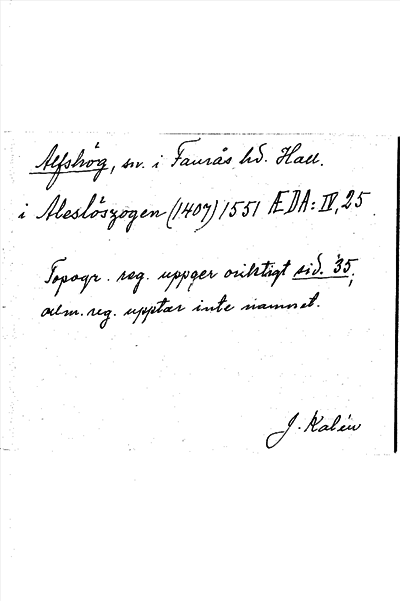 Alfshög, sn. i Faurås hd. Hall.
i Aleslöszogen (1407) 1551 ÆDA: IV, 25
Topogr. reg. uppger oriktigt sid. 35;
alm. reg. upptar inte namnet.
J. Kalén